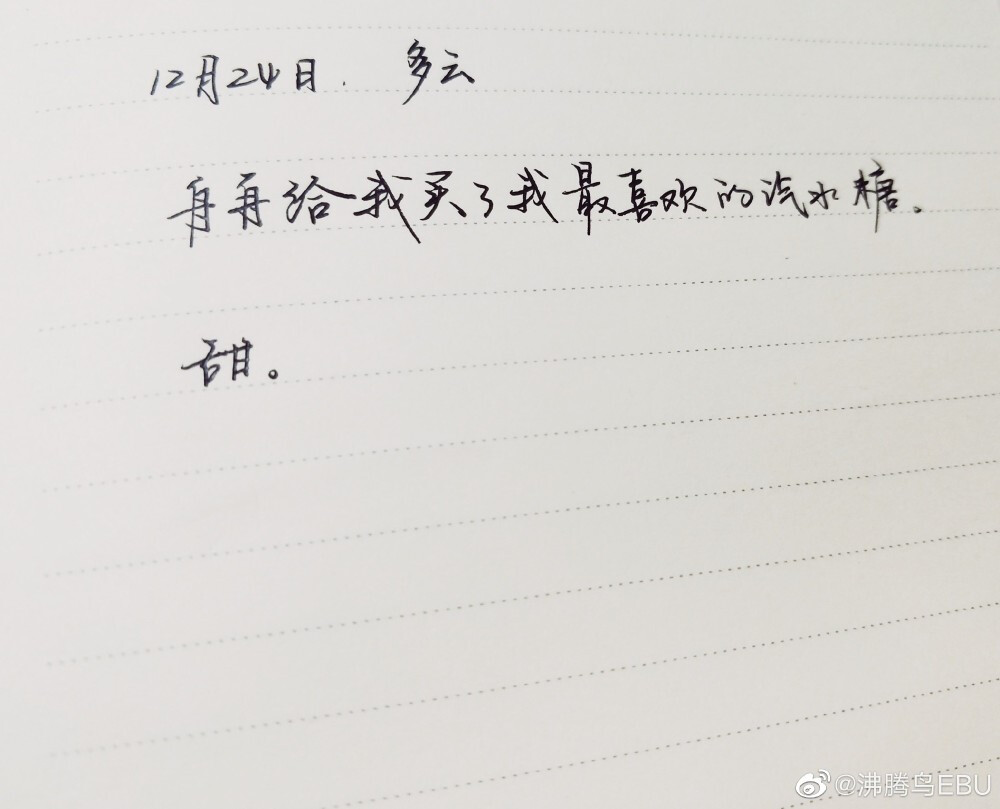 12月24日. 多云
冉冉给我买了我最喜欢的汽水糖。
甜。
@沸腾鸟EBU